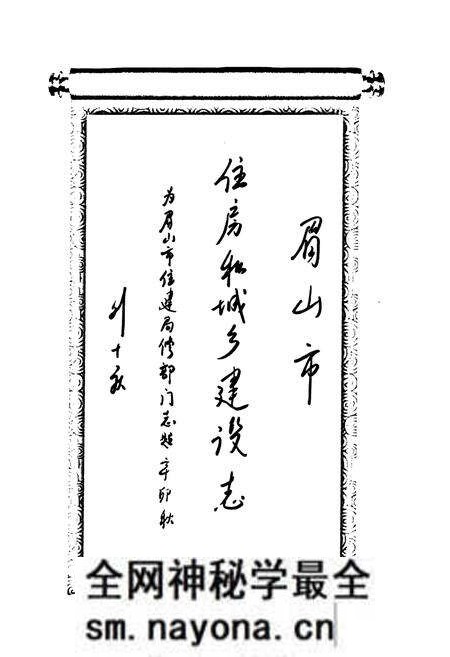 眉山市
住房和城乡建设志
为眉山市住建局修部门志题 辛卯秋
全网神秘学最全
sm.nayona.cn